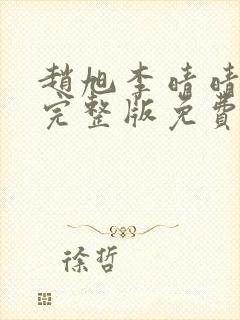 趙旭李晴晴
完整版免費
徐哲